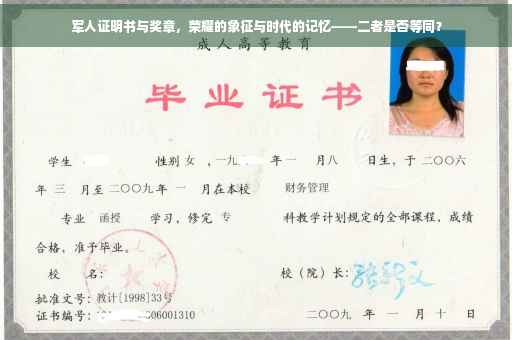 军人证明书与奖章，荣耀的象征与时代的记忆——二者是否等同？
成人高等教育
毕业证书
学生 性别 女 ，一九 年 一 月八 日生，于 二〇〇六
年 三 月至 二〇〇九 年 一 月在本校 财务管理
专业 函授 学习，修完 专 科教学计划规定的全部课程，成绩
合格，准予毕业。
校 名： 校（院）长：
批准文号：教计[1998]33号
证书编号： 06001310 二〇〇九 年 一 月 十 日